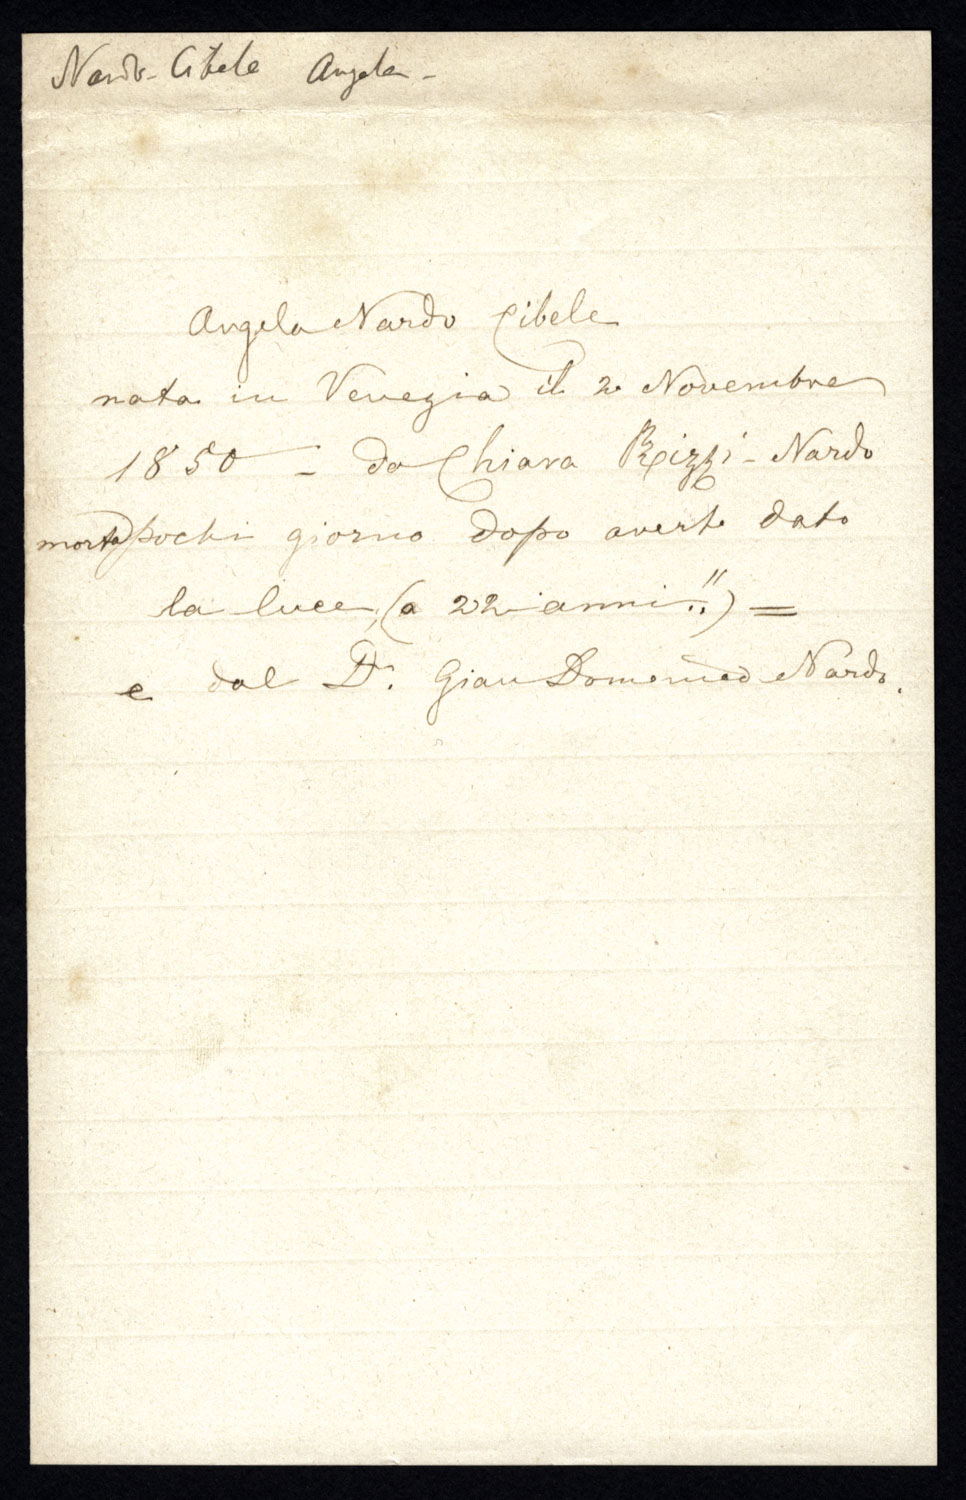 Nardo-Cibele Angela -
Angela Nardo Cibele
nata in Venezia il 2 Novembre
1850 - da Chiara Rizzi - Nardo
morta pochi giorno dopo averle dato
la luce, (a 22 anni..!!) =
e dal Dr. Gian Domenico Nardo.